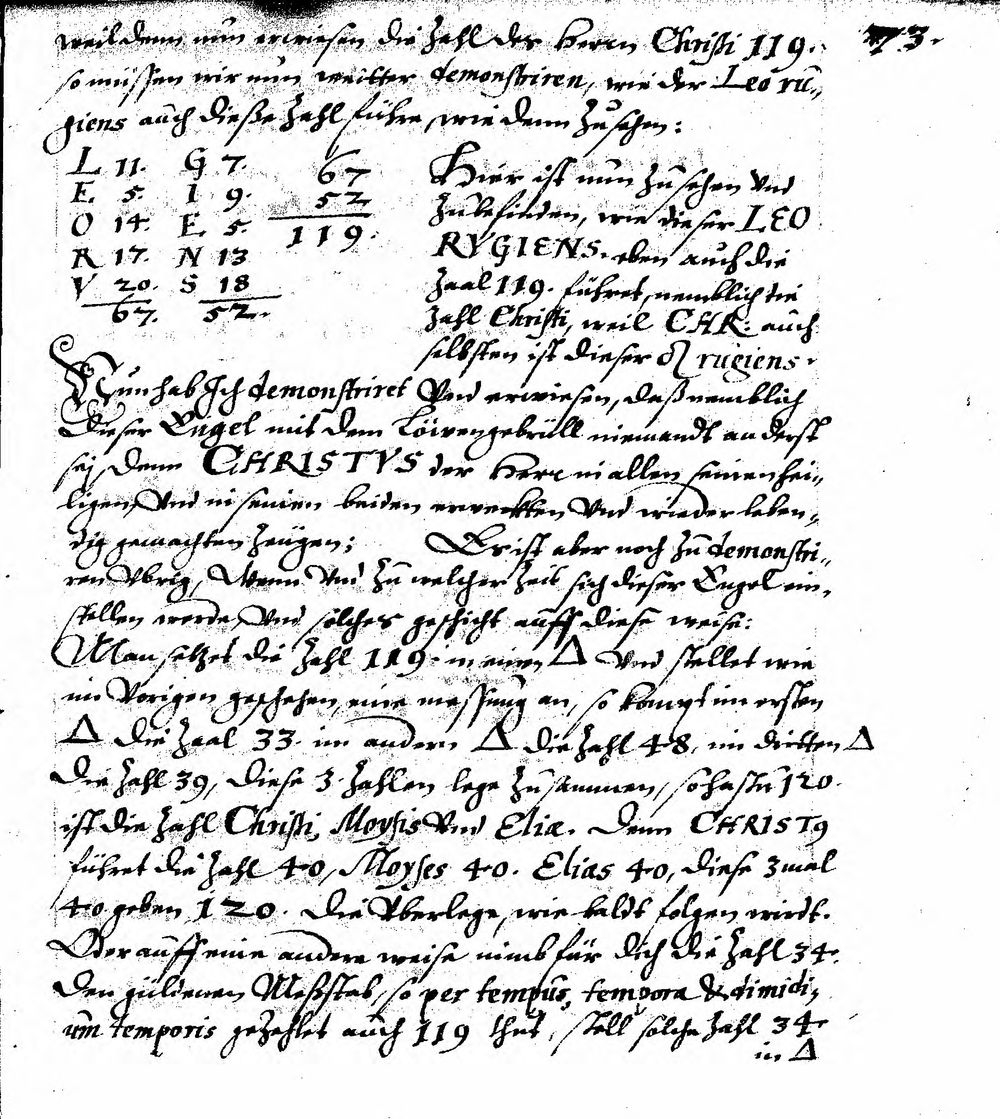 73.
weil denn nun erwiesen die Zahl des Herrn Christi 119.
so müssen wir nun weitter demonstriren, wie der Leo ru„
giens auch dieße Zahl führe, wie denn zu sehen:
L 11. G 7. 67
E. 5. I 9. 52
O 14. E 5. 119.
R 17. N 13
V 20. S 18
67. 52.
Hier ist nun zu sehen vnd
zubefinden, wie dieser LEO
RVGIENS. eben auch die
Zaal 119. führet, nemblich die
Zahl Christi, weil CHR: auch
selbsten ist dieser ♌ rugiens.
Nun hab Ich demonstriret Vnd erwiesen, daß nemblich
dieser Engel mit dem Löwengebrüll niemandt anderst
sej, denn CHRISTVS der Herr in allen seinen hei„
ligen, Vnd in seinen beiden erweckten Vnd wieder leben„
dig gemachten Zeügen; Es ist aber noch zu demonstri„
ren Vbrig, Wenn Vnd zu welcher Zeit sich dieser Engel ein„
stellen werde, Vnd solches geschicht auff diese weise:
Man setzet die Zahl 119. in einen Δ Vnd stellet wie
im Vorigen geschehen, eine messung an, so kompt im ersten
Δ die Zaal 33. im andern Δ die Zahl 48, im dritten Δ
die Zahl 39, diese 3. Zahlen lege zusammen, so hastu 120.
ist die Zahl Christi, Moysis Vnd Eliæ. Denn CHRIST9
führet die Zahl 40, Moyses 40. Elias 40, diese 3 mal
40 geben 120. die Vberlege, wie baldt folgen wirdt.
Oder auff eine andere weise nimb für dich die Zahl 34.
den güldenen Meßstab, so per tempus, tempora & dimidi„
um temporis gezehlet auch 119 thut, stell solche Zahl 34
in Δ